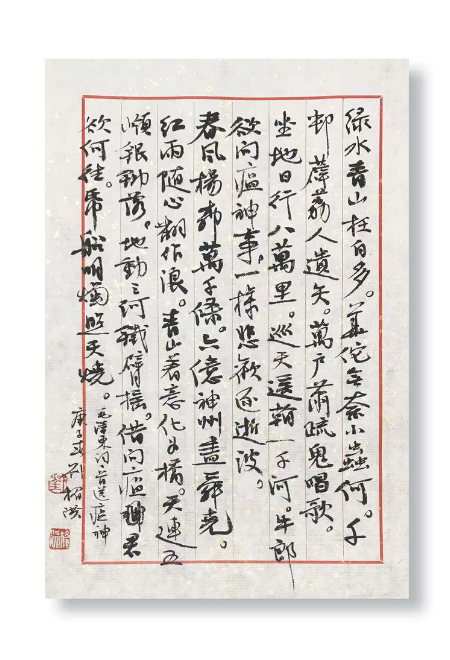 绿水青山枉自多。華佗無奈小蟲何。千
邨薜荔人遺矢。萬户蕭疏鬼唱歌。
坐地日行八萬里。巡天遥看一千河。牛郎
欲问瘟神事,一樣悲歡逐逝波。
春風楊柳萬千條。六億神州盡舜堯。
红雨随心翻作浪。青山着意化为橋。天連五
嶺銀鋤落。地動三河鐵臂摇。借问瘟神君
欲何往。帋船明燭照天燒。
毛澤東詩二首送瘟神
庚子春刘